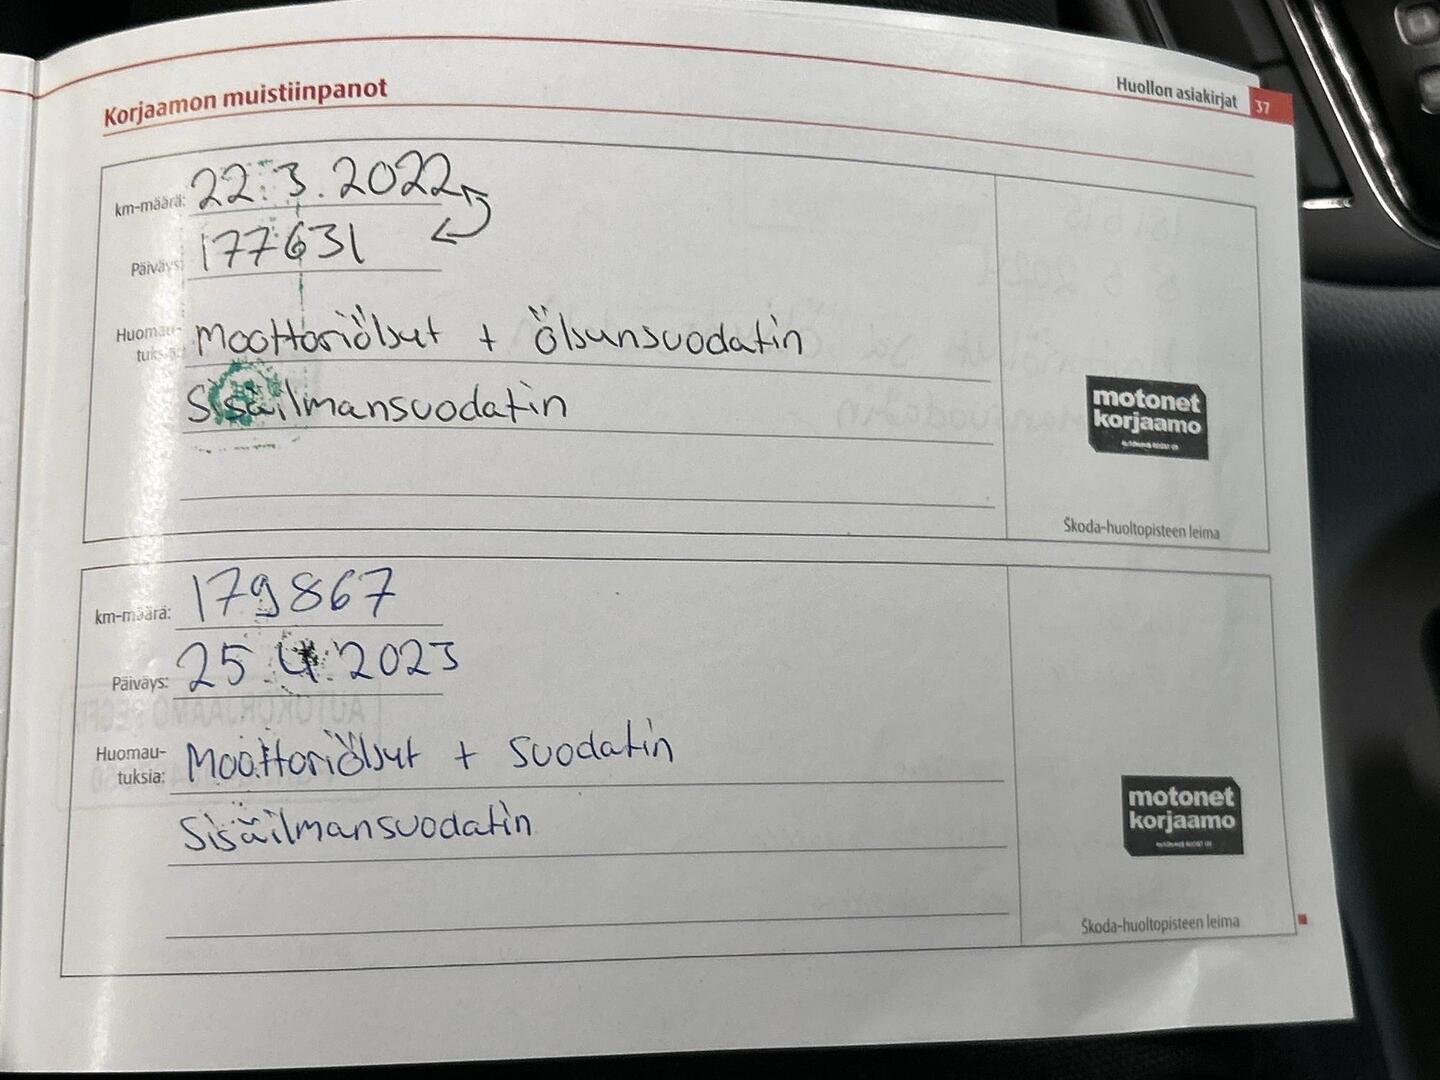 Korjaamon muistiinpanot
Huollon asiakirjat 37
km-määrä: 22.3.2022
Päiväys: 177631
Huomau- Moottoriöljyt + öljynsuodatin
tuksia:
Sisäilmansuodatin
motonet
korjaamo
Škoda-huoltopisteen leima
km-määrä: 179867
Päiväys: 25.4.2023
Huomau- Moottoriöljyt + suodatin
tuksia:
Sisäilmansuodatin
motonet
korjaamo
Škoda-huoltopisteen leima